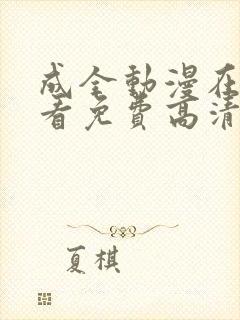 成全動漫在
看免費高清
夏棋